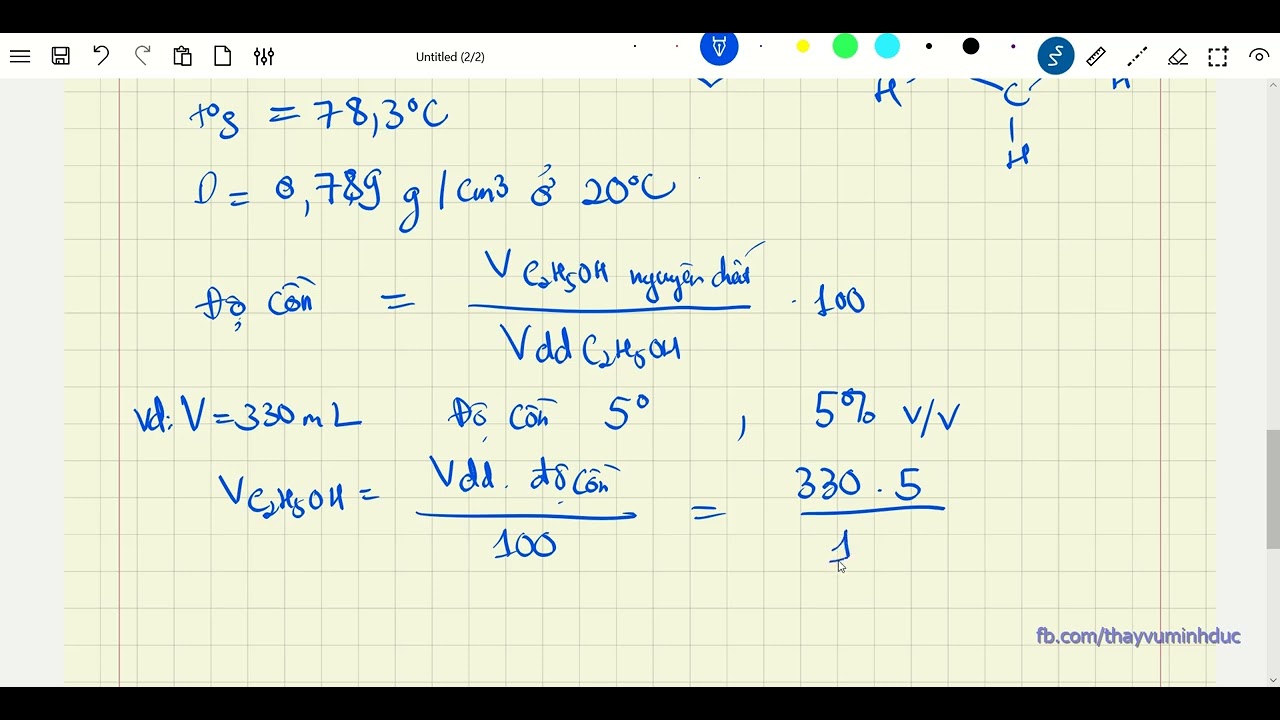 Untitled (2/2)
H C H
H
t°s = 78,3°C
D = 0,789 g/cm3 ở 20°C
Độ cồn = V C2H5OH nguyên chất / Vdd C2H5OH . 100
Vd: V = 330 mL Độ cồn 5° , 5% v/v
V C2H5OH = Vdd. độ cồn / 100 = 330 . 5 / 1
fb.com/thayvuminhduc